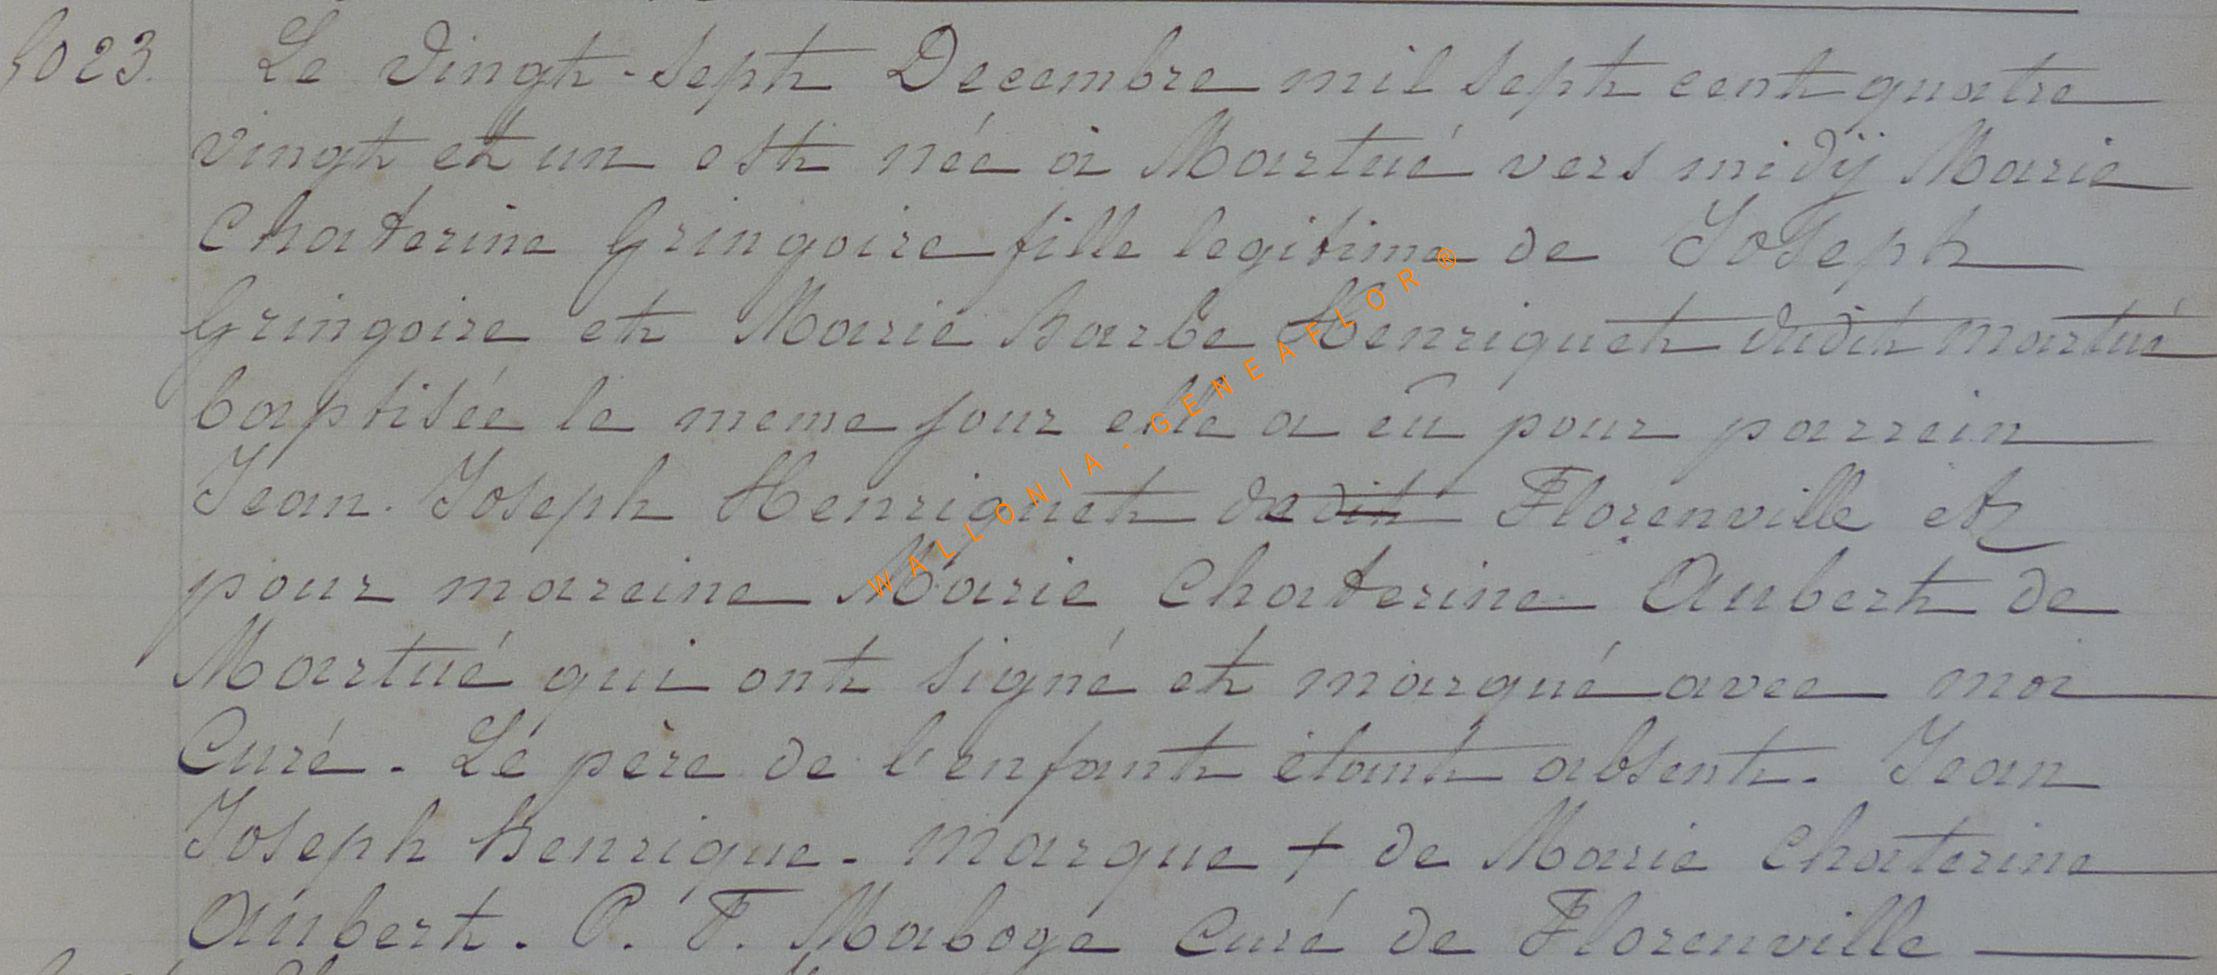 5023. Le vingt-sept Decembre mil sept cent quatre
vingt et un est née à Martué vers midÿ Marie
Chaterine Gringoire fille legitime de Joseph
Gringoire et Marie Barbe Henriquet dudit Martué
baptisée le meme jour elle a eû pour parrein
Jean. Joseph Henriquet de dit Florenville et
pour mareine Marie Chaterine Aubert de
Martué qui ont signé et marqué avec moi
Curé. Lé père de l'enfant étant absent. Jean
Joseph Henrique. marque + de Marie Chaterine
Aubert. P. F. Mabogé Curé de Florenville
WALLONIA - GENEAFLOR ®